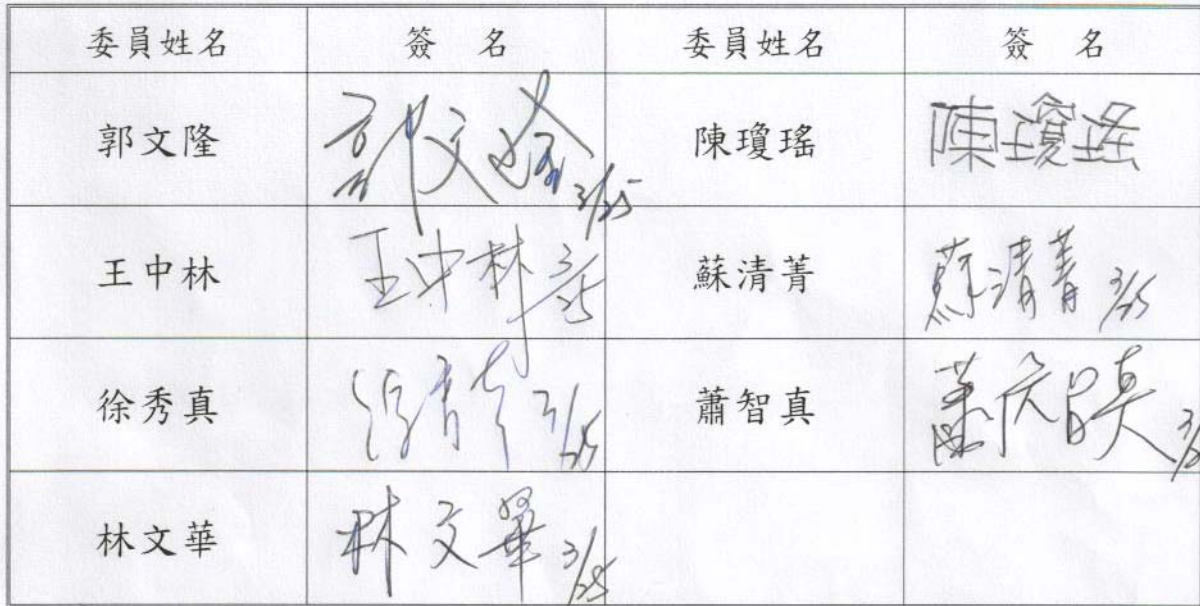 委員姓名 簽 名 委員姓名 簽 名
郭文隆 郭文隆 3/25 陳瓊瑤 陳瓊瑤
王中林 王中林 3/25 蘇清菁 蘇清菁 3/25
徐秀真 3/25 蕭智真 3/2
林文華 林文華 3/25